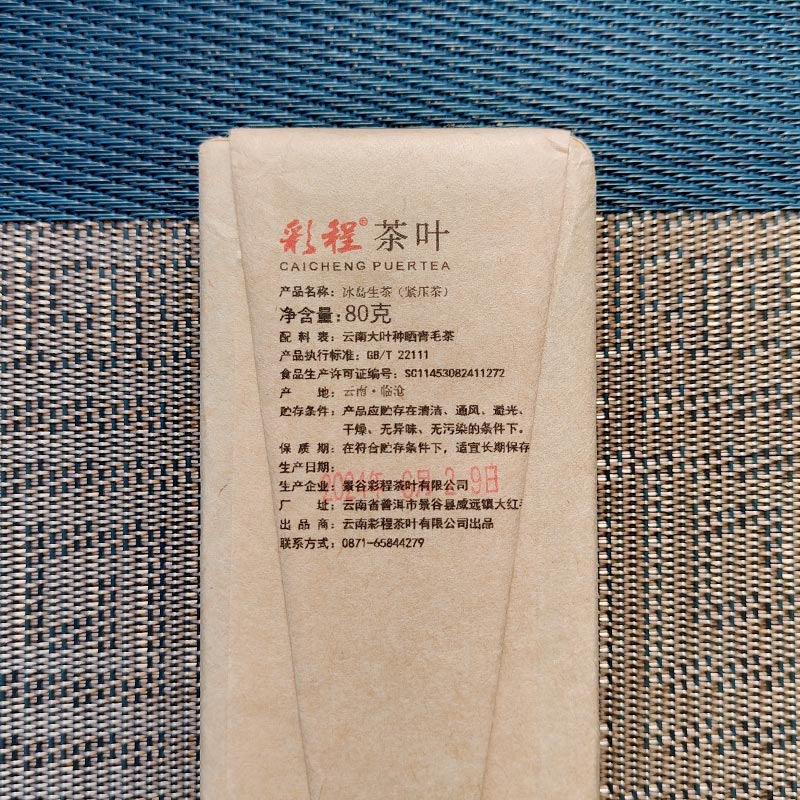 彩程®茶叶
CAICHENG PUERTEA
产品名称：冰岛生茶（紧压茶）
净含量：80克
配 料 表：云南大叶种晒青毛茶
产品执行标准：GB/T 22111
食品生产许可证编号：SC11453082411272
产 地：云南·临沧
贮存条件：产品应贮存在清洁、通风、避光、
干燥、无异味、无污染的条件下。
保 质 期：在符合贮存条件下，适宜长期保存
生产日期：
2021年 9月 2 9日
生产企业：景谷彩程茶叶有限公司
厂 址：云南省普洱市景谷县威远镇大红
出 品 商：云南彩程茶叶有限公司出品
联系方式：0871-65844279